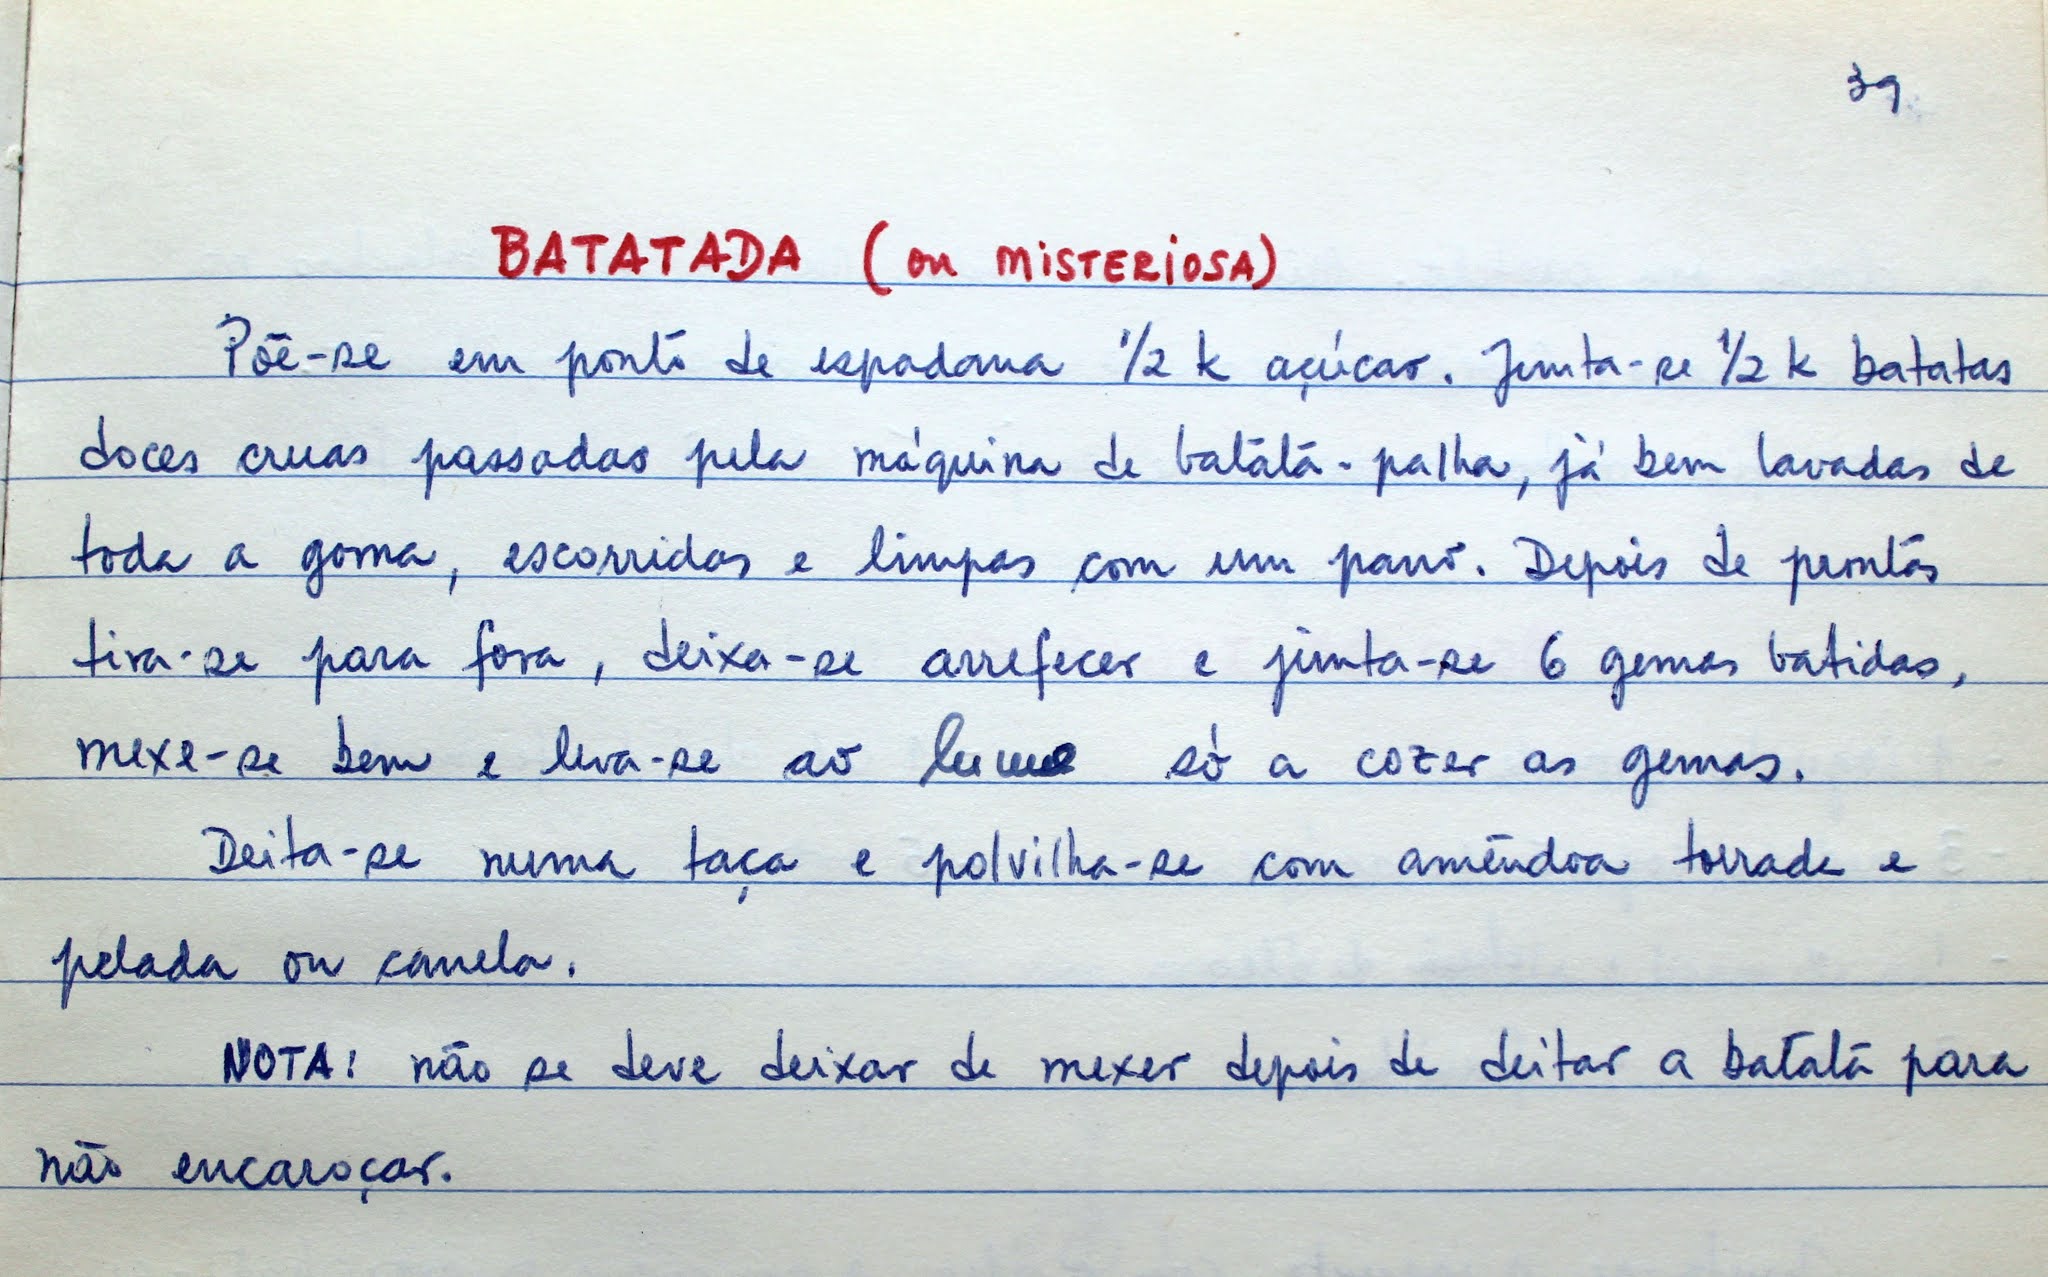 39
BATATADA (ou MISTERIOSA)
Põe-se em ponto de espadana 1/2 k açúcar. Junta-se 1/2 k batatas
doces cruas passadas pela máquina de batata-palha, já bem lavadas de
toda a goma, escorridas e limpas com um pano. Depois de prontas
tira-se para fora, deixa-se arrefecer e junta-se 6 gemas batidas,
mexe-se bem e leva-se ao lume só a cozer as gemas.
Deita-se numa taça e polvilha-se com amêndoa torrada e
pelada ou canela.
NOTA: não se deve deixar de mexer depois de deitar a batata para
não encaroçar.